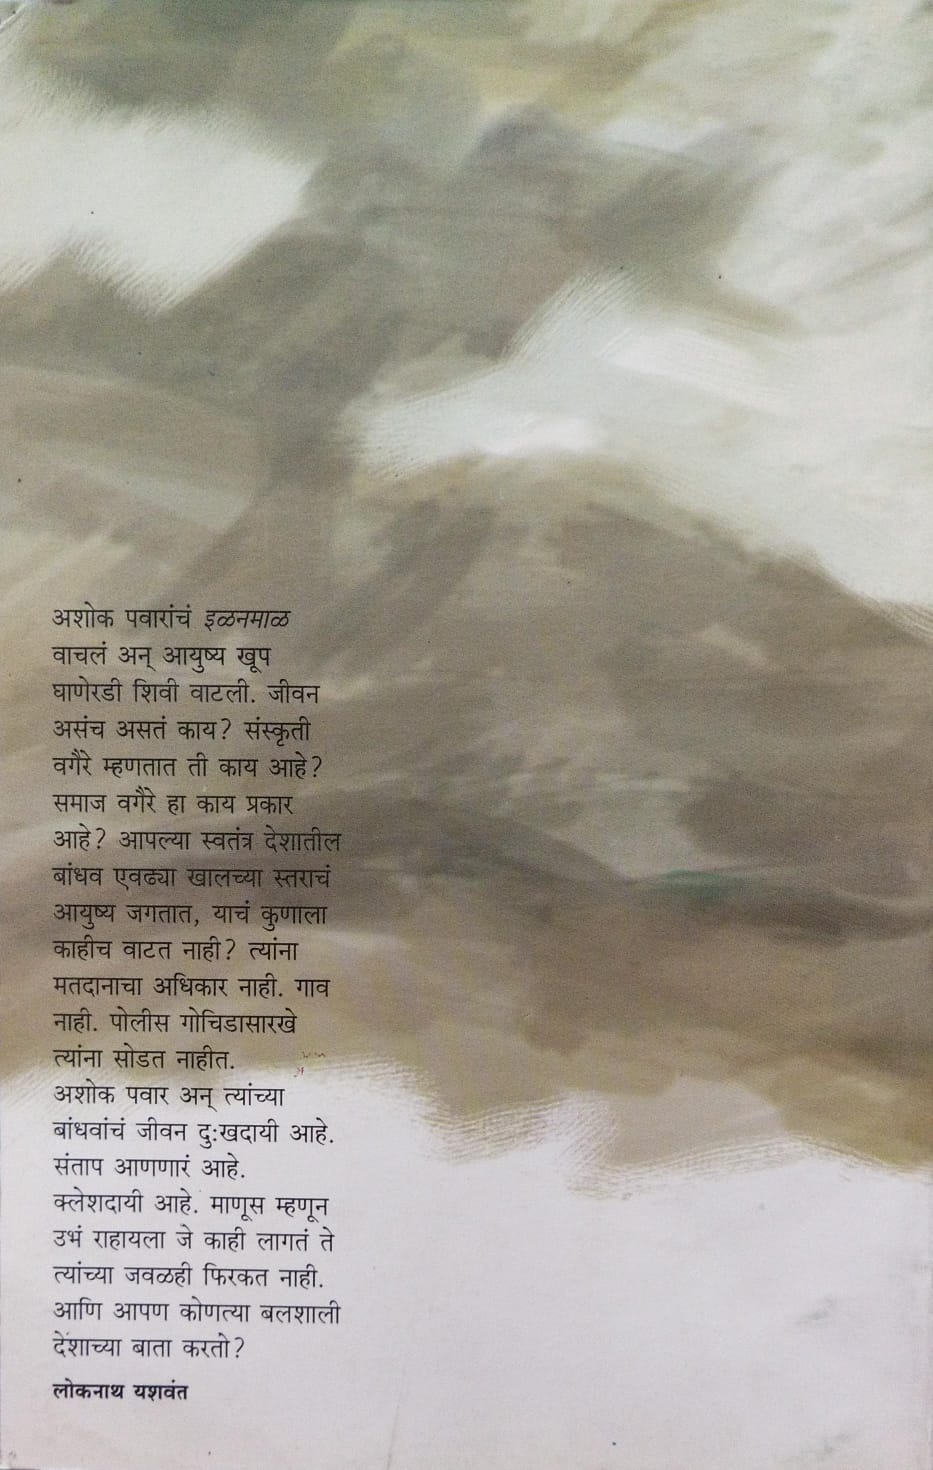 अशोक पवारांचं इळनमाळ
वाचलं अन् आयुष्य खूप
घाणेरडी शिवी वाटली. जीवन
असंच असतं काय? संस्कृती
वगैरे म्हणतात ती काय आहे?
समाज वगैरे हा काय प्रकार
आहे? आपल्या स्वतंत्र देशातील
बांधव एवढ्या खालच्या स्तराचं
आयुष्य जगतात, याचं कुणाला
काहीच वाटत नाही? त्यांना
मतदानाचा अधिकार नाही. गाव
नाही. पोलीस गोचिडासारखे
त्यांना सोडत नाहीत.
अशोक पवार अन् त्यांच्या
बांधवांचं जीवन दुःखदायी आहे.
संताप आणणारं आहे.
क्लेशदायी आहे. माणूस म्हणून
उभं राहायला जे काही लागतं ते
त्यांच्या जवळही फिरकत नाही.
आणि आपण कोणत्या बलशाली
देशाच्या बाता करतो?
लोकनाथ यशवंत